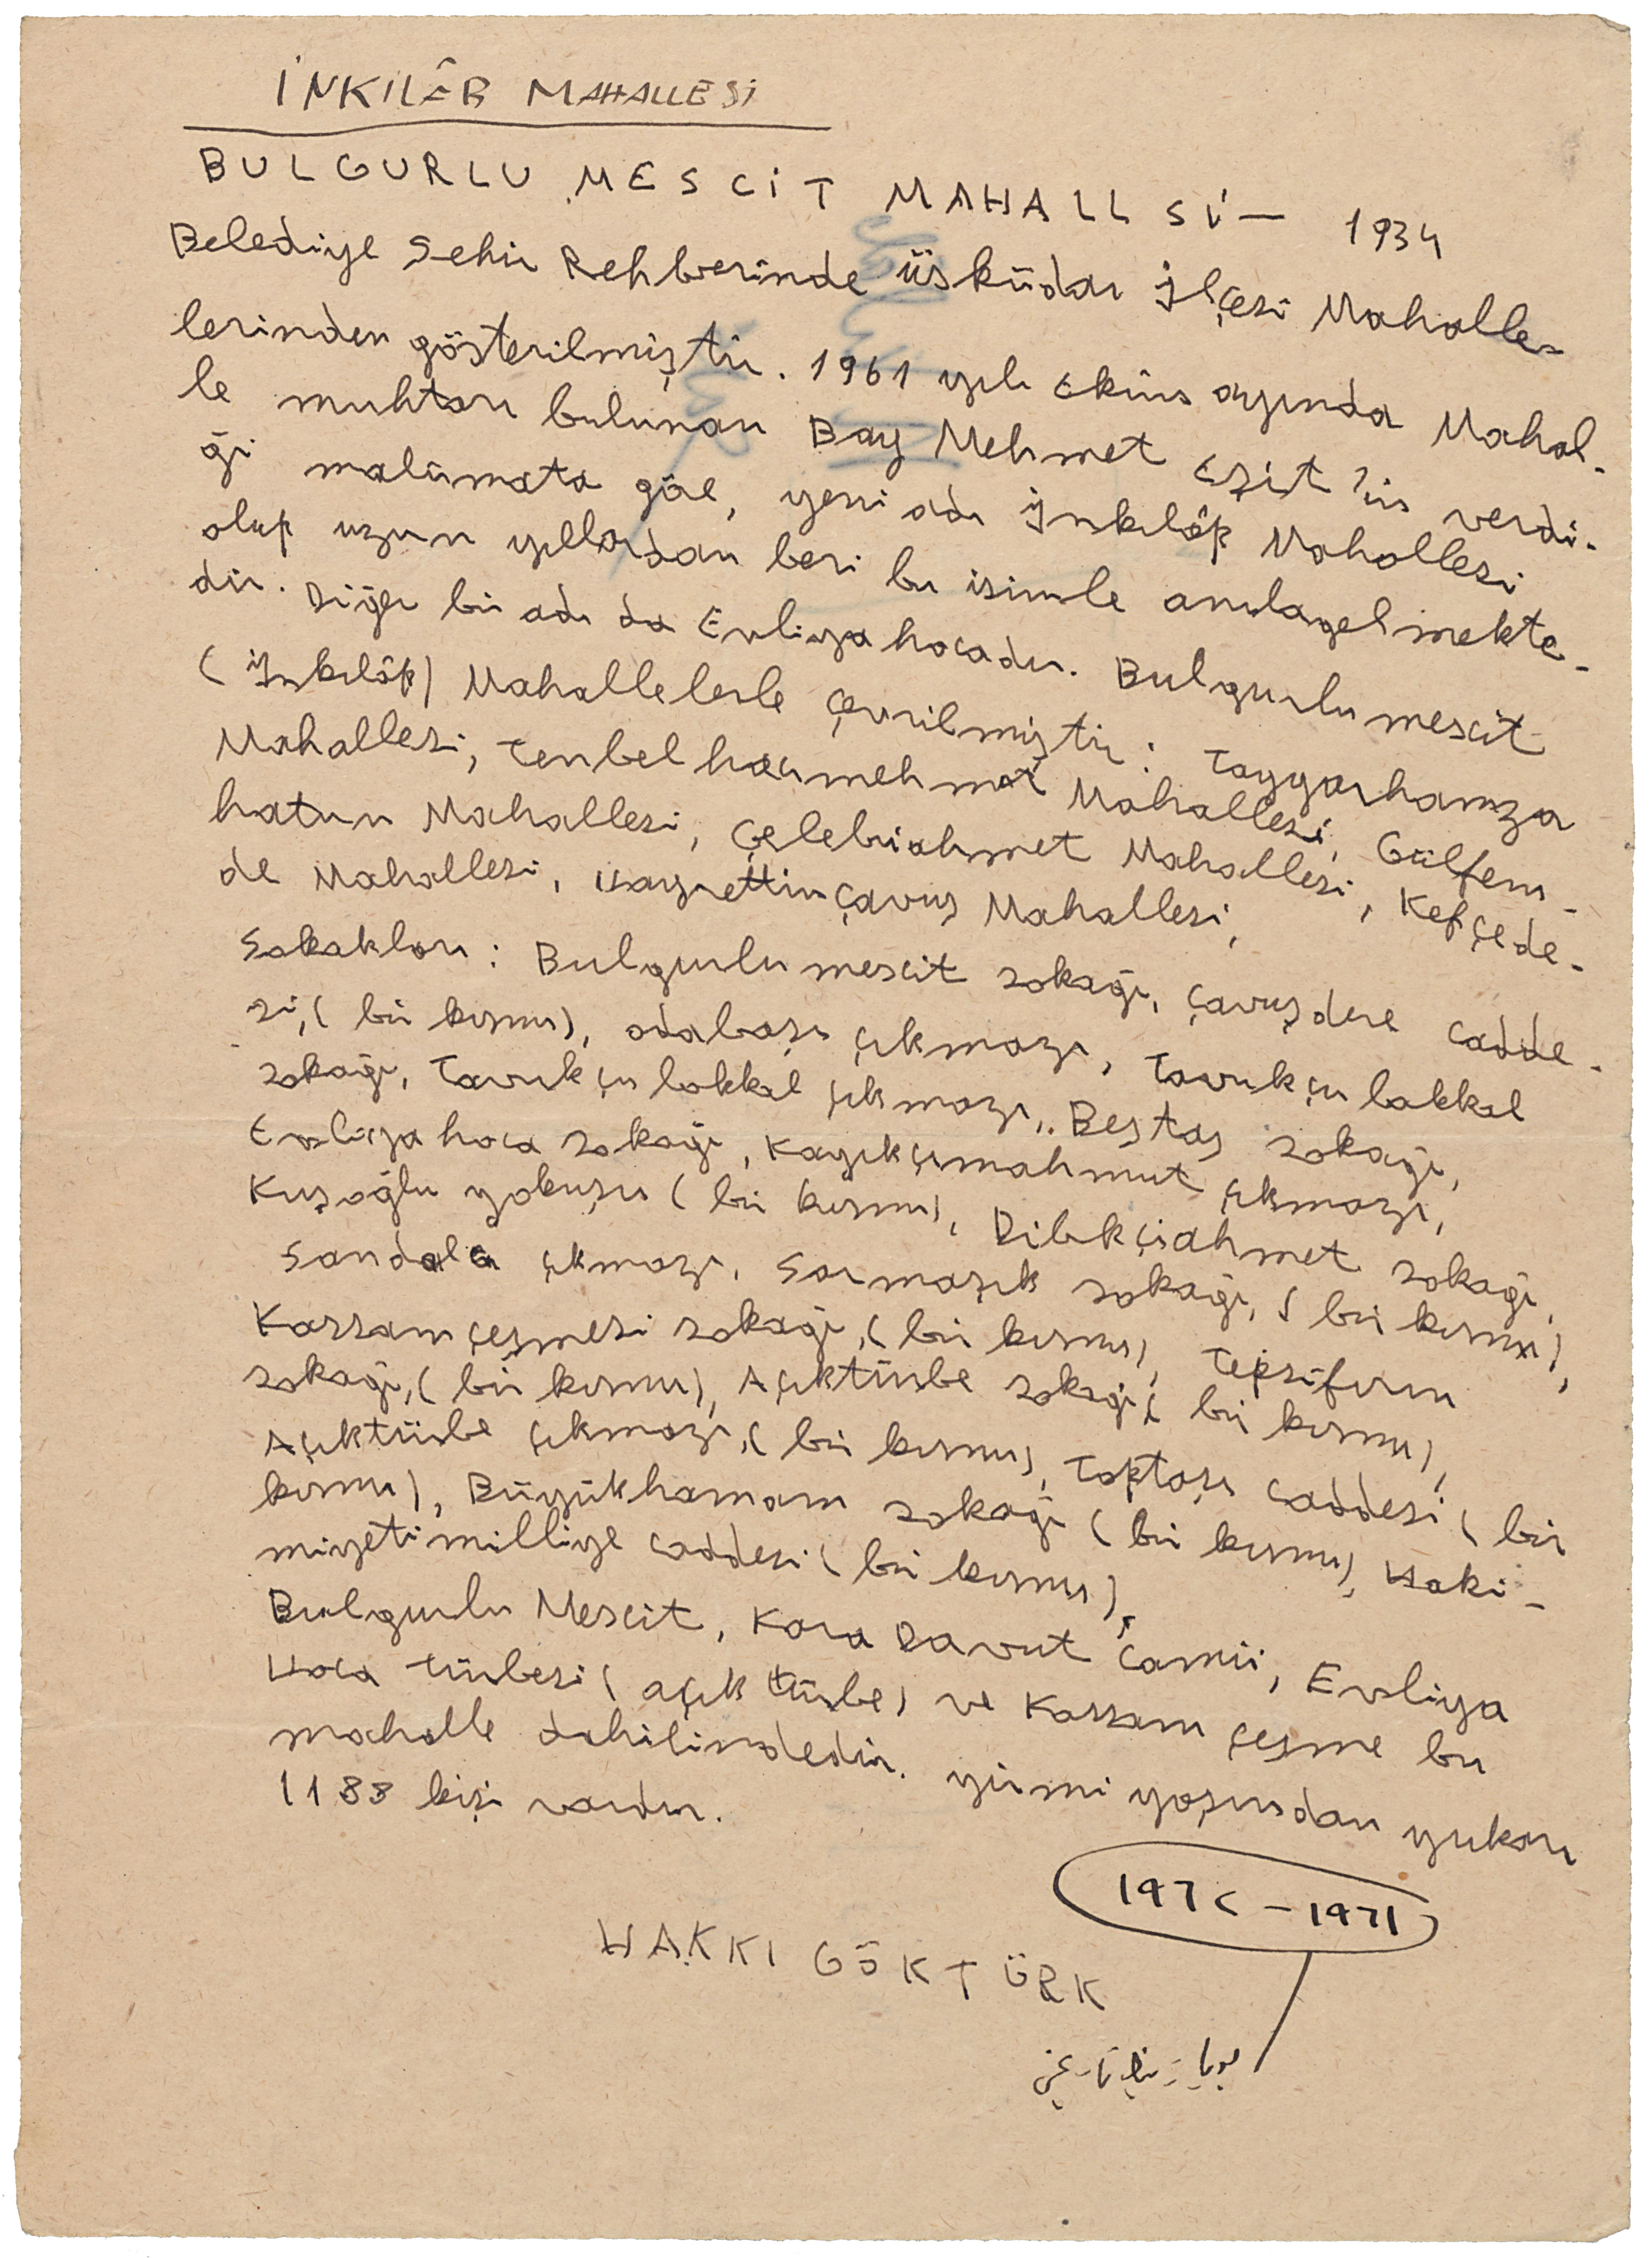 İNKILÂB MAHALLESİ
BULGURLU MESCİT MAHALLSİ — 1934
Belediye Şehir Rehberinde Üsküdar İlçesi Mahalle-
lerinden gösterilmiştir. 1961 yılı Ekim ayında Mahal-
le muhtarı bulunan Bay Mehmet Eşit'in verdi-
ği malûmata göre, yeni adı İnkılâp Mahallesi
olup uzun yıllardan beri bu isimle anılagelmekte-
dir. Diğer bir adı da Evliyahocadır. Bulgurlumescit
(İnkılâp) Mahallelerle çevrilmiştir: Tayyarhamza
Mahallesi, Tenbelhacımehmet Mahallesi, Gülfem-
hatun Mahallesi, Çelebiahmet Mahallesi, Kefçede-
de Mahallesi, Hayrettinçavuş Mahallesi,
Sokakları: Bulgurlumescit sokağı, Çavuşdere cadde-
si, (bir kısmı), odabaşı çıkmazı, Tavukçubakkal
sokağı, Tavukçubakkal çıkmazı, Beştaş sokağı,
Evliyahoca sokağı, Kayıkçımahmut çıkmazı,
Kuşoğlu yokuşu (bir kısmı), Dibekçiahmet sokağı,
Sandalcı çıkmazı, Sarmaşık sokağı, (bir kısmı),
Kassamçeşmesi sokağı, (bir kısmı), Tepsifırın
sokağı, (bir kısmı), Açıktürbe sokağı (bir kısmı),
Açıktürbe çıkmazı, (bir kısmı), Toptaşı caddesi (bir
kısmı), Büyükhamam sokağı (bir kısmı), Haki-
miyetimilliye caddesi (bir kısmı),
Bulgurlu Mescit, Kara Davut Camii, Evliya
Hoca türbesi (açık türbe) ve Kassam çeşme bu
mahalle dahilindedir. yirmi yaşından yukarı
1188 kişi vardır.
197< - 1971
HAKKI GÖKTÜRK